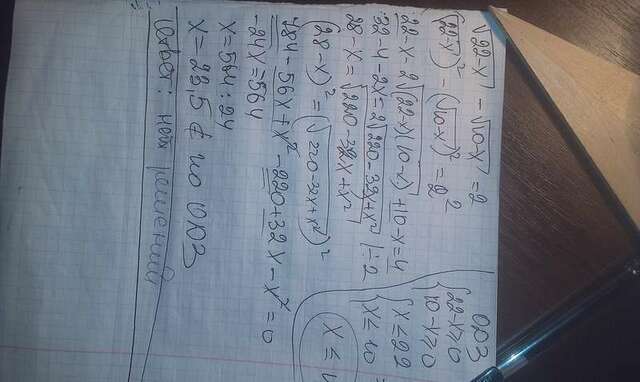 √22-x - √10-x = 2
(√22-x)² - (√10-x)² = 2²
22-x-2√(22-x)(10-x) +10-x=4
32-4-2x=2√220-32x+x² |:2
28-x=√220-32x+x²
(28-x)²=(√220-32x+x²)²
784-56x+x²-220+32x-x²=0
-24x=564
x=564:24
x=23,5 ∉ по ОДЗ
Ответ: нет решений
ОДЗ
{22-x≥0
10-x≥0
{x≤22
x≤10
x≤